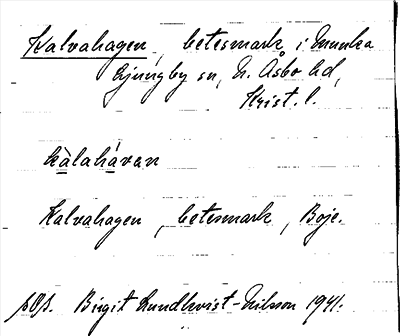 Kalvahagen, betesmark i Munka
Ljungby sn, N. Åsbo hd,
Krist. l.
kàlahávan
Kalvahagen, betesmark, Boje.
Birgit Lundkvist-Nilsson 1941.